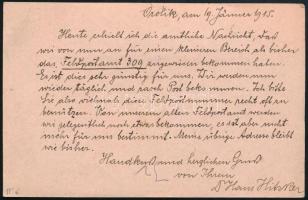 Orolik, am 19. Jänner 1915.
Heute erhielt ich die amtliche Nachricht, daß
wir von nun an für einen kleineren Bereich als bisher
das Feldpostamt 309 angewiesen bekommen haben.
Es ist dies sehr günstig für uns. Wir werden nun
wieder täglich und rasch Post bekommen. Ich bitte
Sie also vielmals diese Feldpostnummer recht oft zu
benützen. Von unserem alten Feldpostamt werden
wir gelegentlich noch etwas bekommen, es ist aber nicht
mehr für uns bestimmt. Meine übrige Adresse bleibt
wie bisher.
Handkuß und herzlichen Gruß
von Ihrem
Dr Hans